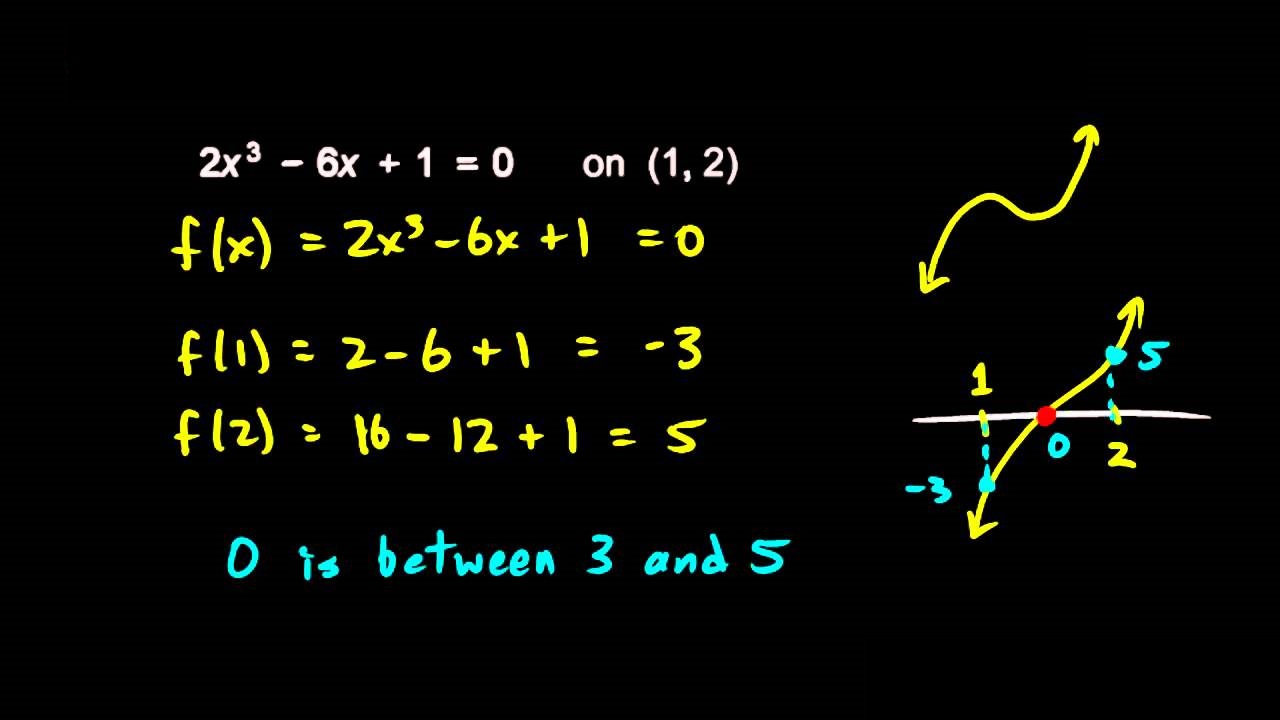 2x³ − 6x + 1 = 0 on (1, 2)
f(x) = 2x³ - 6x + 1 = 0
f(1) = 2 - 6 + 1 = -3
f(2) = 16 - 12 + 1 = 5
0 is between 3 and 5
5
1
0
2
-3